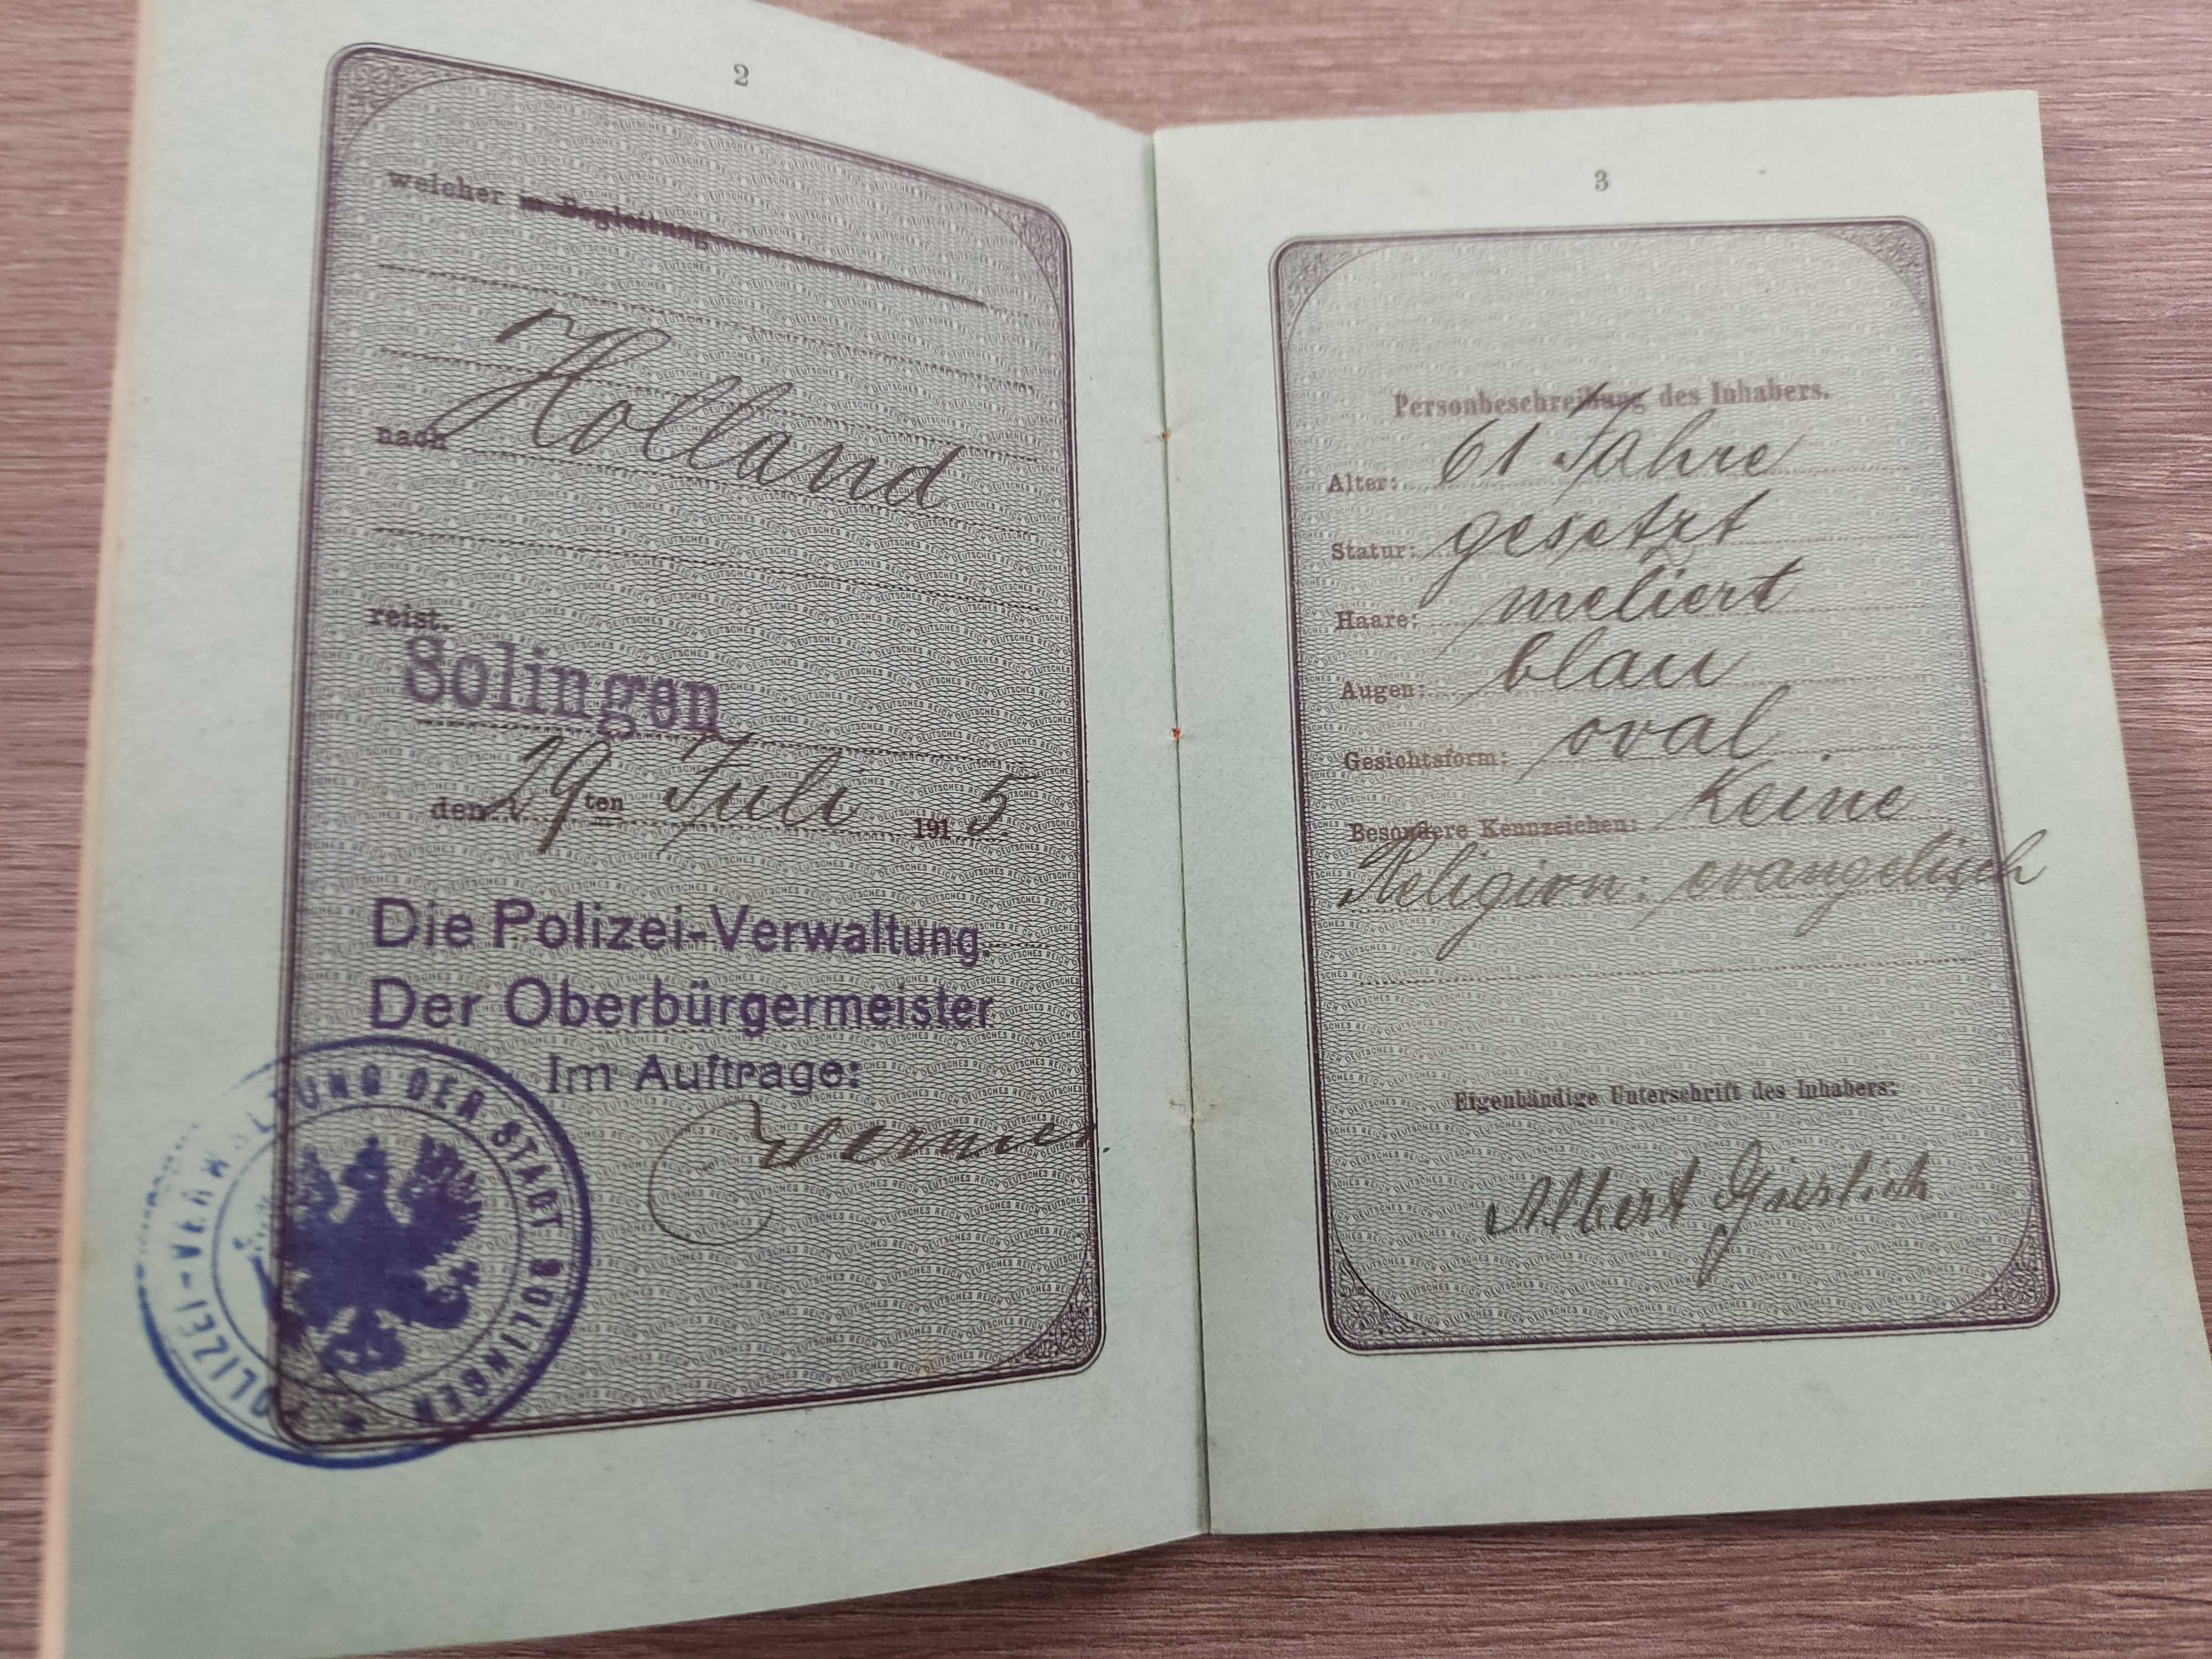 2
welcher in Begleitung
nach Holland
reist.
Solingen
den 29ten Juli 1915.
Die Polizei-Verwaltung.
Der Oberbürgermeister
Im Auftrage:
POLIZEI-VERWALTUNG DER STADT SOLINGEN
3
Personbeschreibung des Inhabers.
Alter: 61 Jahre
Statur: gesetzt
Haare: meliert
Augen: blau
Gesichtsform: oval
Besondere Kennzeichen: Keine
Religion: evangelisch
Eigenhändige Unterschrift des Inhabers:
Albert